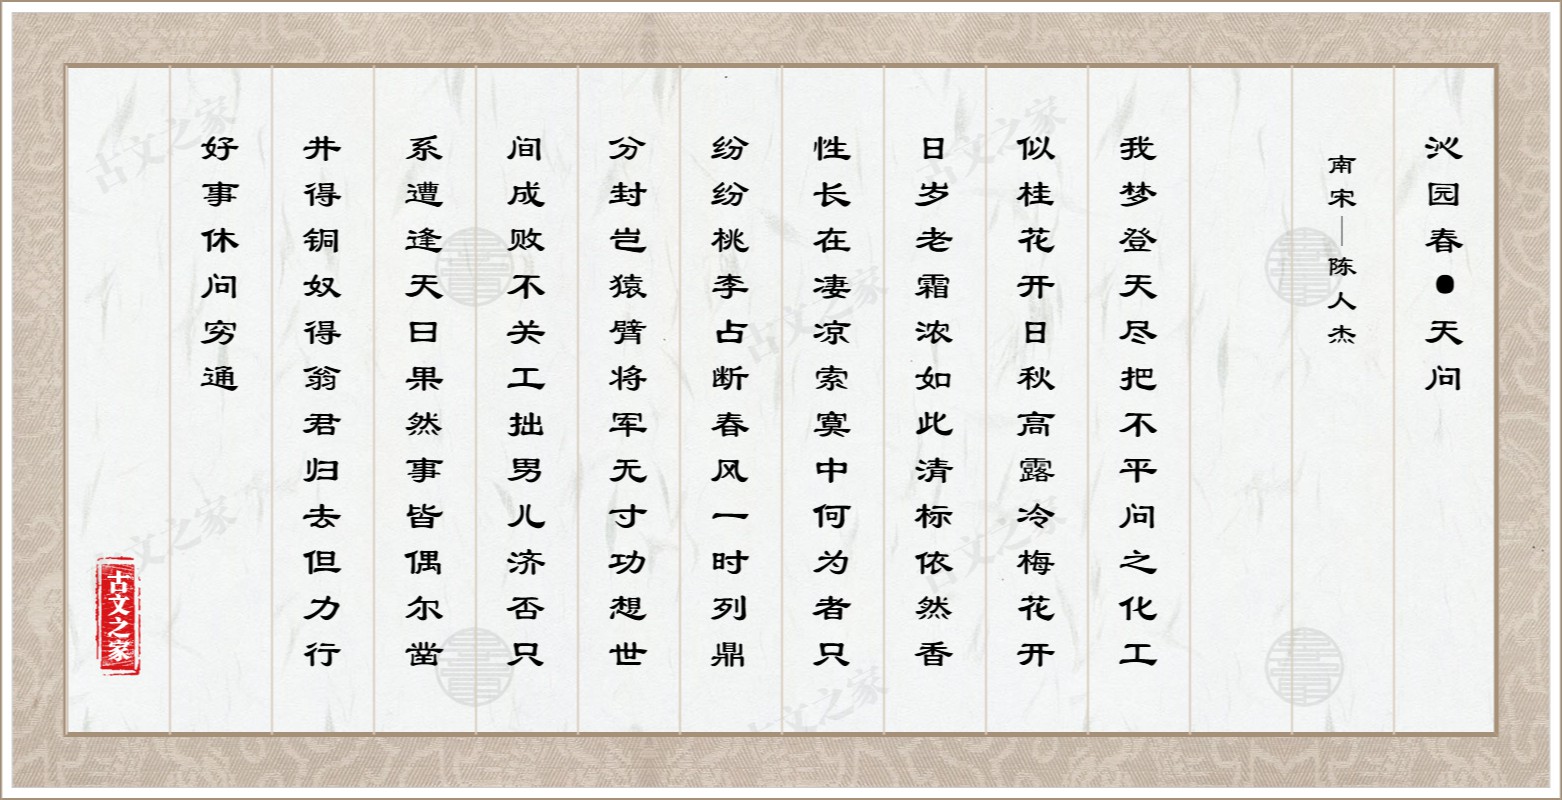 沁园春●天问
南宋—陈人杰
我梦登天尽把不平问之化工
似桂花开日秋高露冷梅花开
日岁老霜浓如此清标依然香
性长在凄凉索寞中何为者只
纷纷桃李占断春风一时列鼎
分封岂猿臂将军无寸功想世
间成败不关工拙男儿济否只
系遭逢天曰果然事皆偶尔凿
井得铜奴得翁君归去但力行
好事休问穷通
古文之家